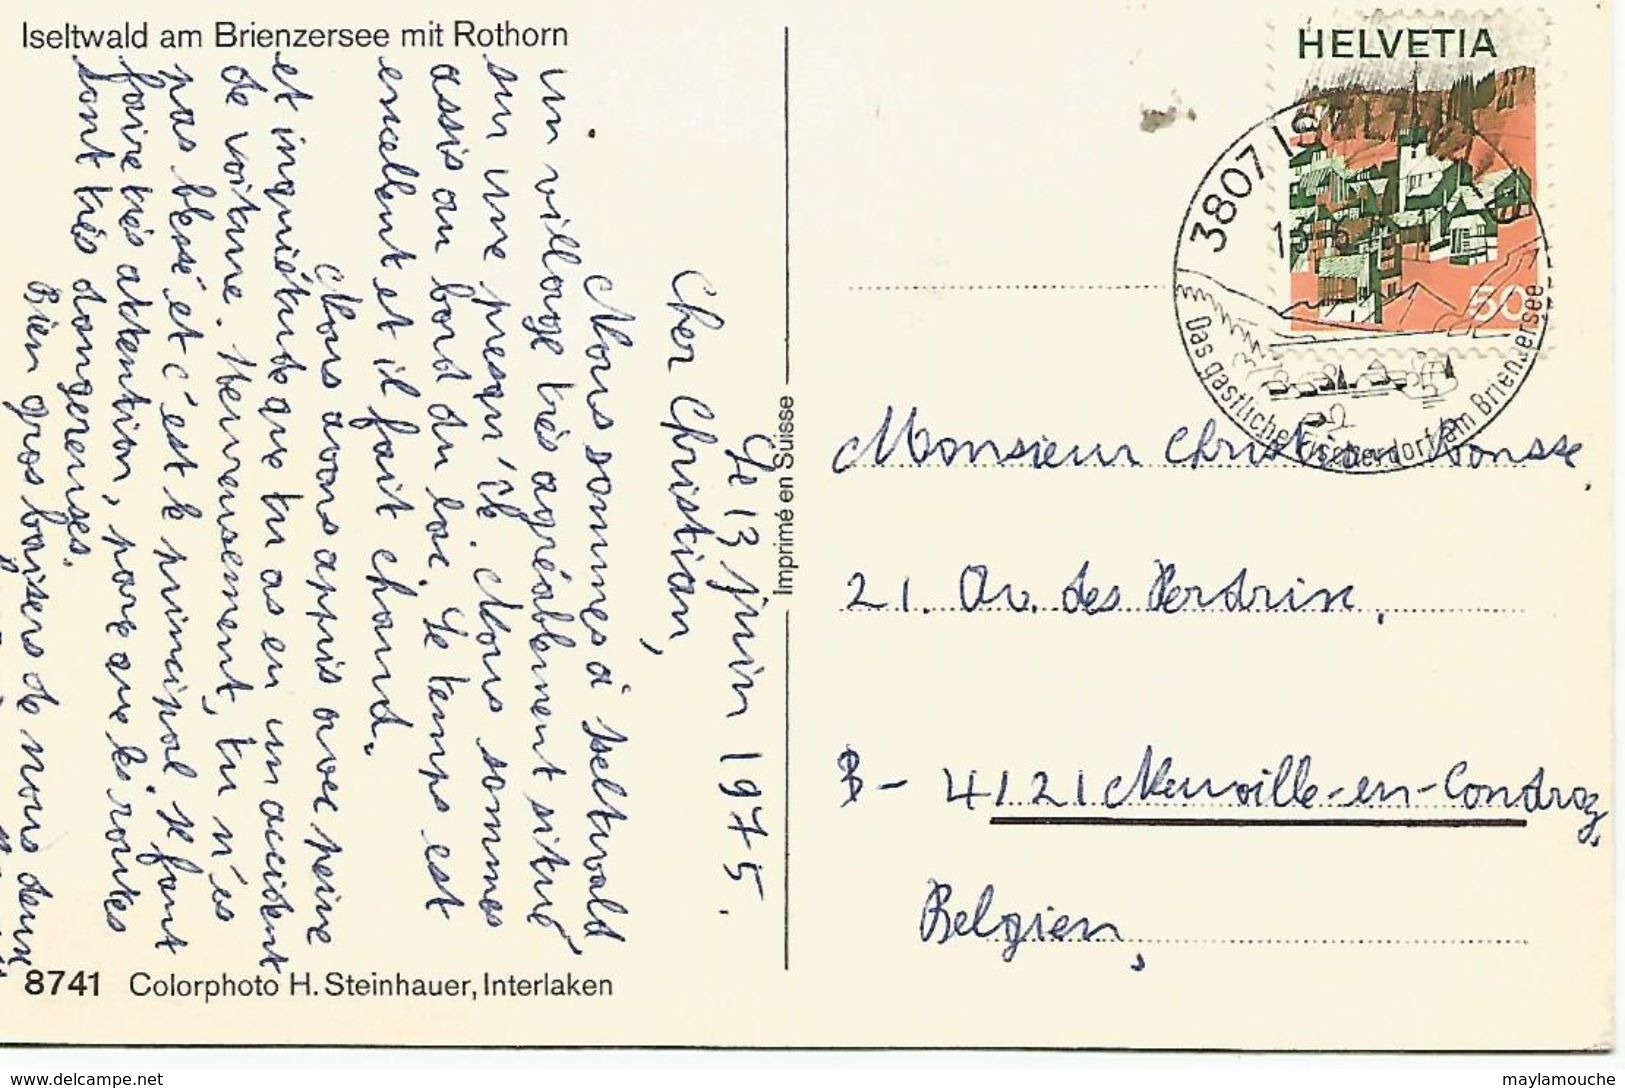 Iseltwald am Brienzersee mit Rothorn
HELVETIA
50
3807
13-6
Das gastliche Fischerdorf am Brienzersee
Le 13 juin 1975.
Cher Christian,
Nous sommes à Iseltwald
un village très agréablement situé,
sur une presqu'île. Nous sommes
assis au bord du lac. Le temps est
excellent et il fait chaud.
Nous avons appris avec peine
et inquiétude que tu as eu un accident
de voiture. Heureusement, tu n'es
pas blessé et c'est le principal. Il faut
faire très attention, parce que les routes
sont très dangereuses.
Bien gros baisers de nous deux
Imprimé en Suisse
Monsieur
21. Av. des Perdrix,
B- 4121 Neuville-en-Condroz,
Belgien,
8741 Colorphoto H. Steinhauer, Interlaken
www.delcampe.net
maylamouche